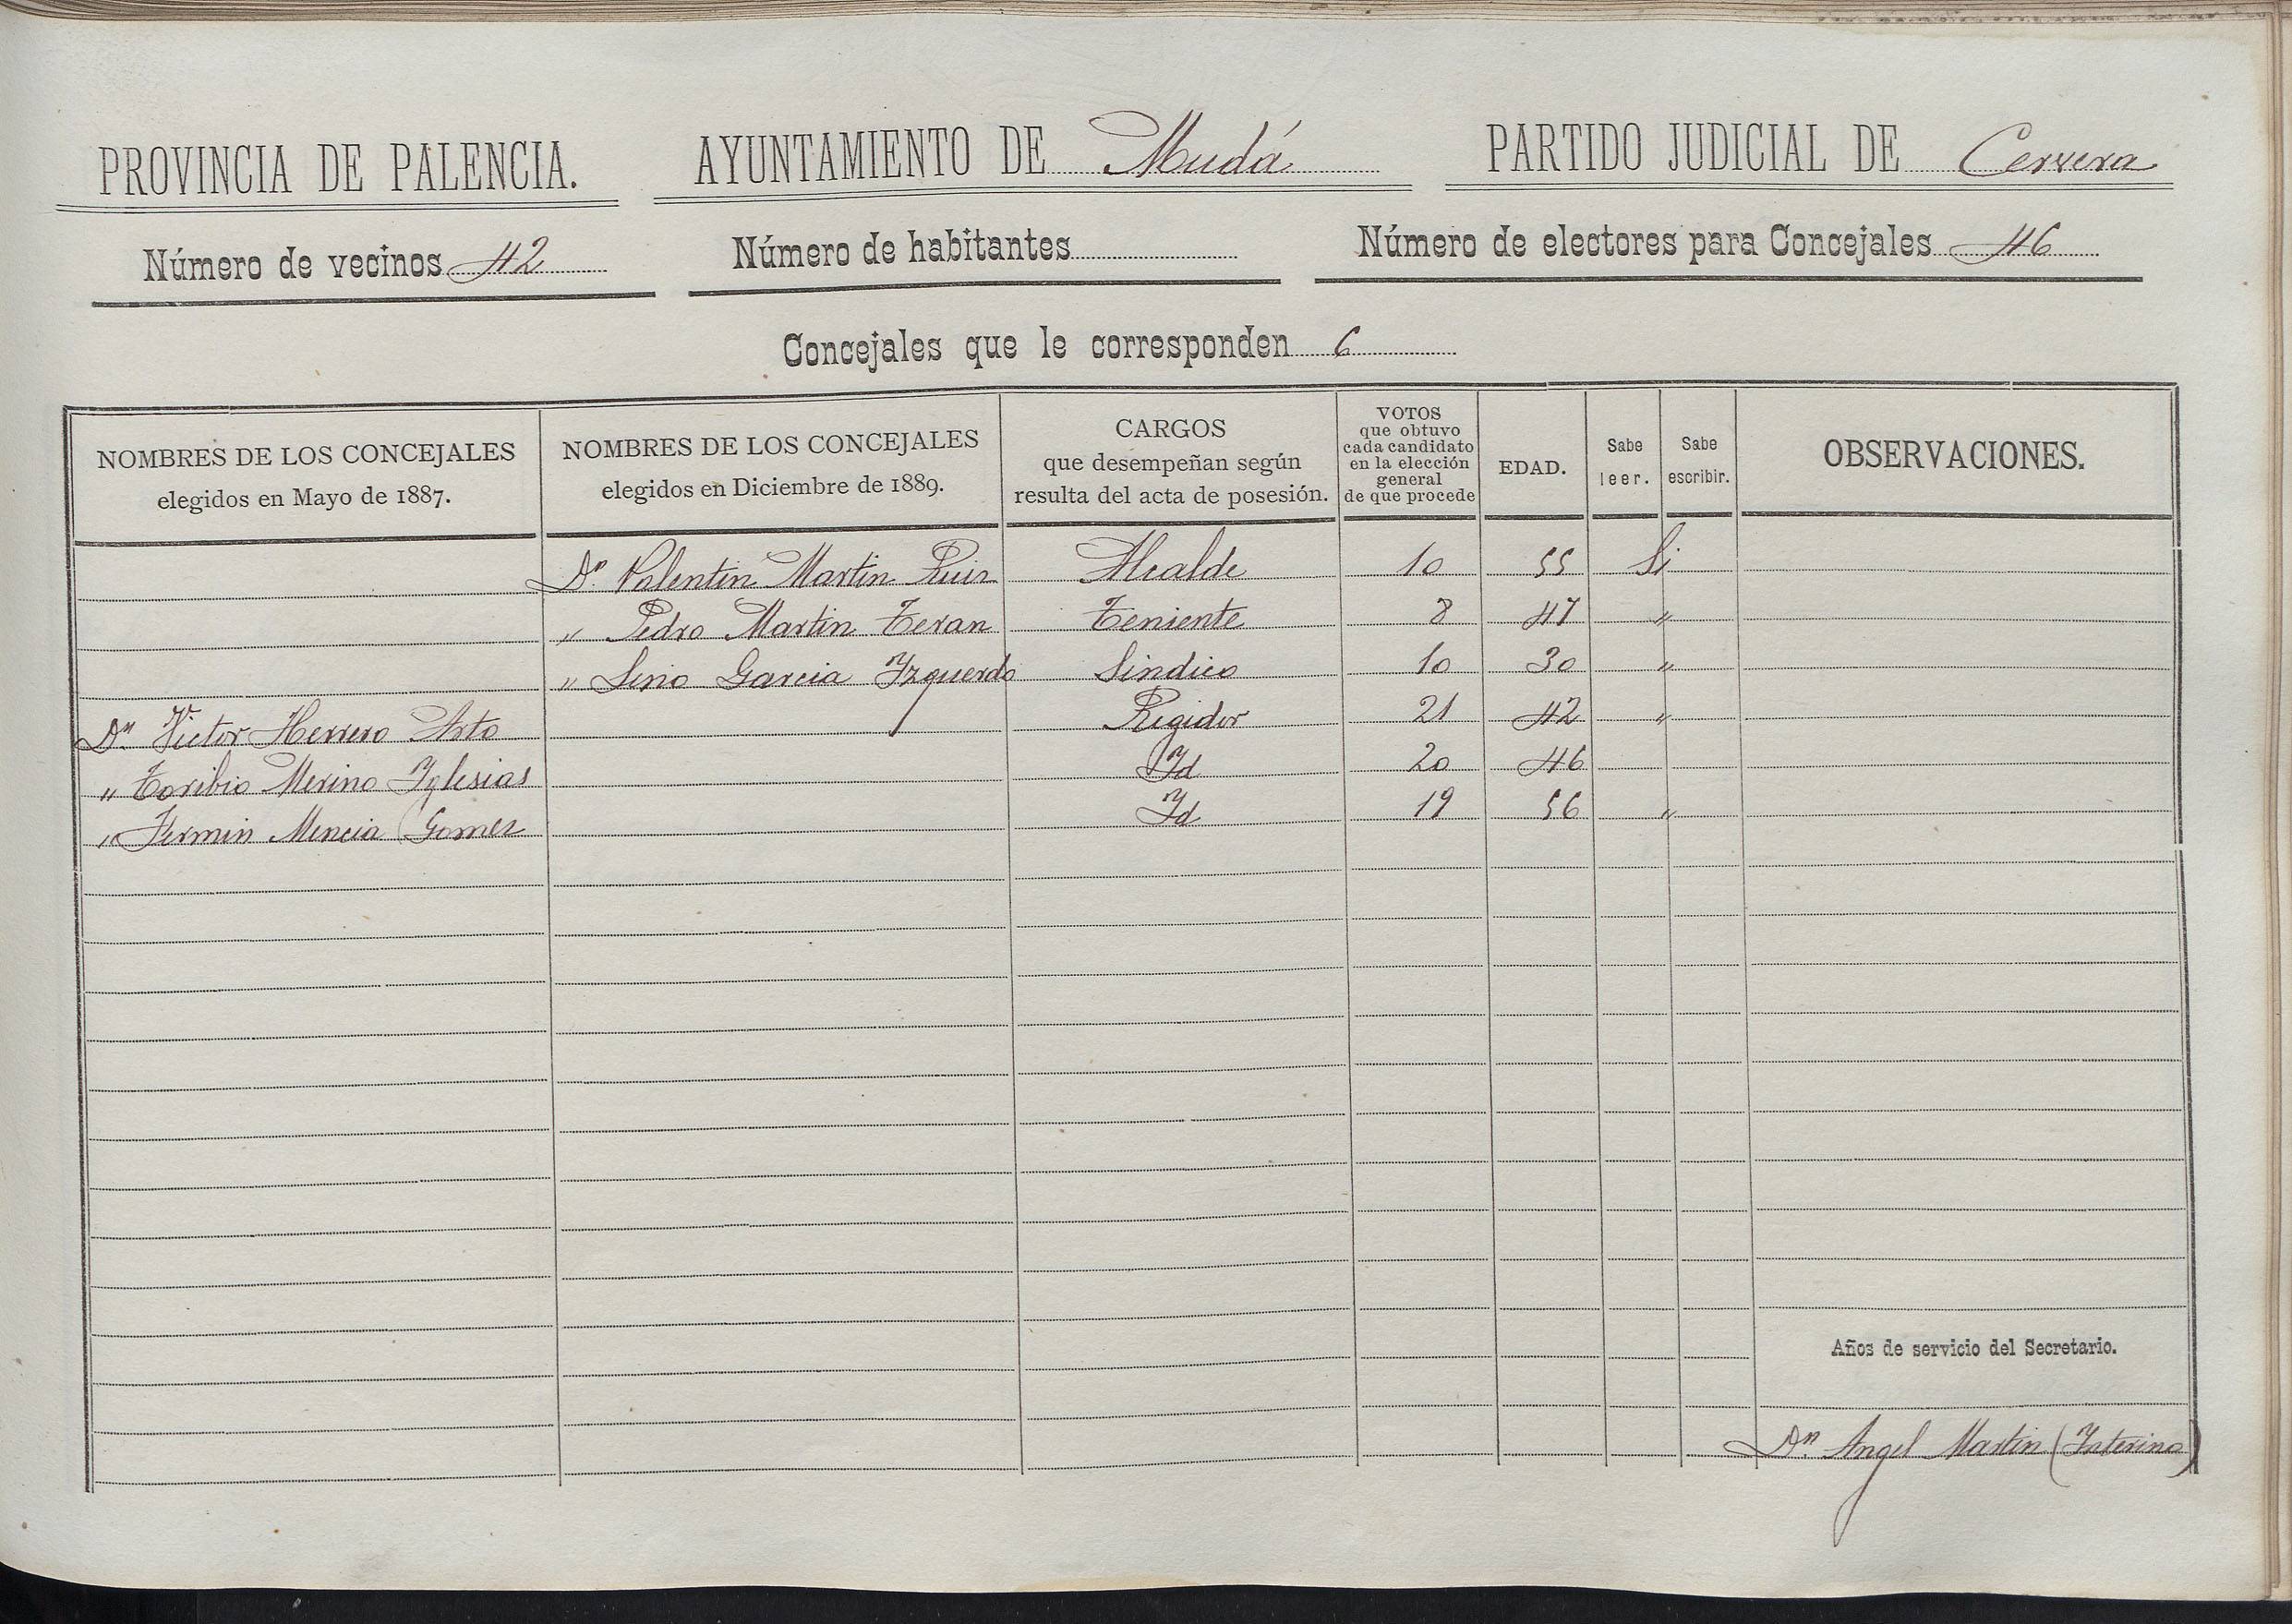 PROVINCIA DE PALENCIA. AYUNTAMIENTO DE Mudá PARTIDO JUDICIAL DE Cervera
Número de vecinos 42 Número de habitantes Número de electores para Concejales 46
Concejales que le corresponden 6
NOMBRES DE LOS CONCEJALES
elegidos en Mayo de 1887.
NOMBRES DE LOS CONCEJALES
elegidos en Diciembre de 1889.
CARGOS
que desempeñan según
resulta del acta de posesión.
VOTOS
que obtuvo
cada candidato
en la elección
general
de que procede
EDAD.
Sabe
leer.
Sabe
escribir.
OBSERVACIONES.
Dn. Valentin Martin Ruiz Alcalde 10 55 Si
" Pedro Martin Teran Teniente 8 47 "
" Sino Garcia Yzquerdo Sindico 10 30 "
Dn. Victor Herrero Arto Regidor 21 42 "
" Toribio Merino Yglesias Yd 20 46
" Fermin Mencia Gomez Yd 19 56 "
Años de servicio del Secretario.
Dn Angel Martin (Ynterino)